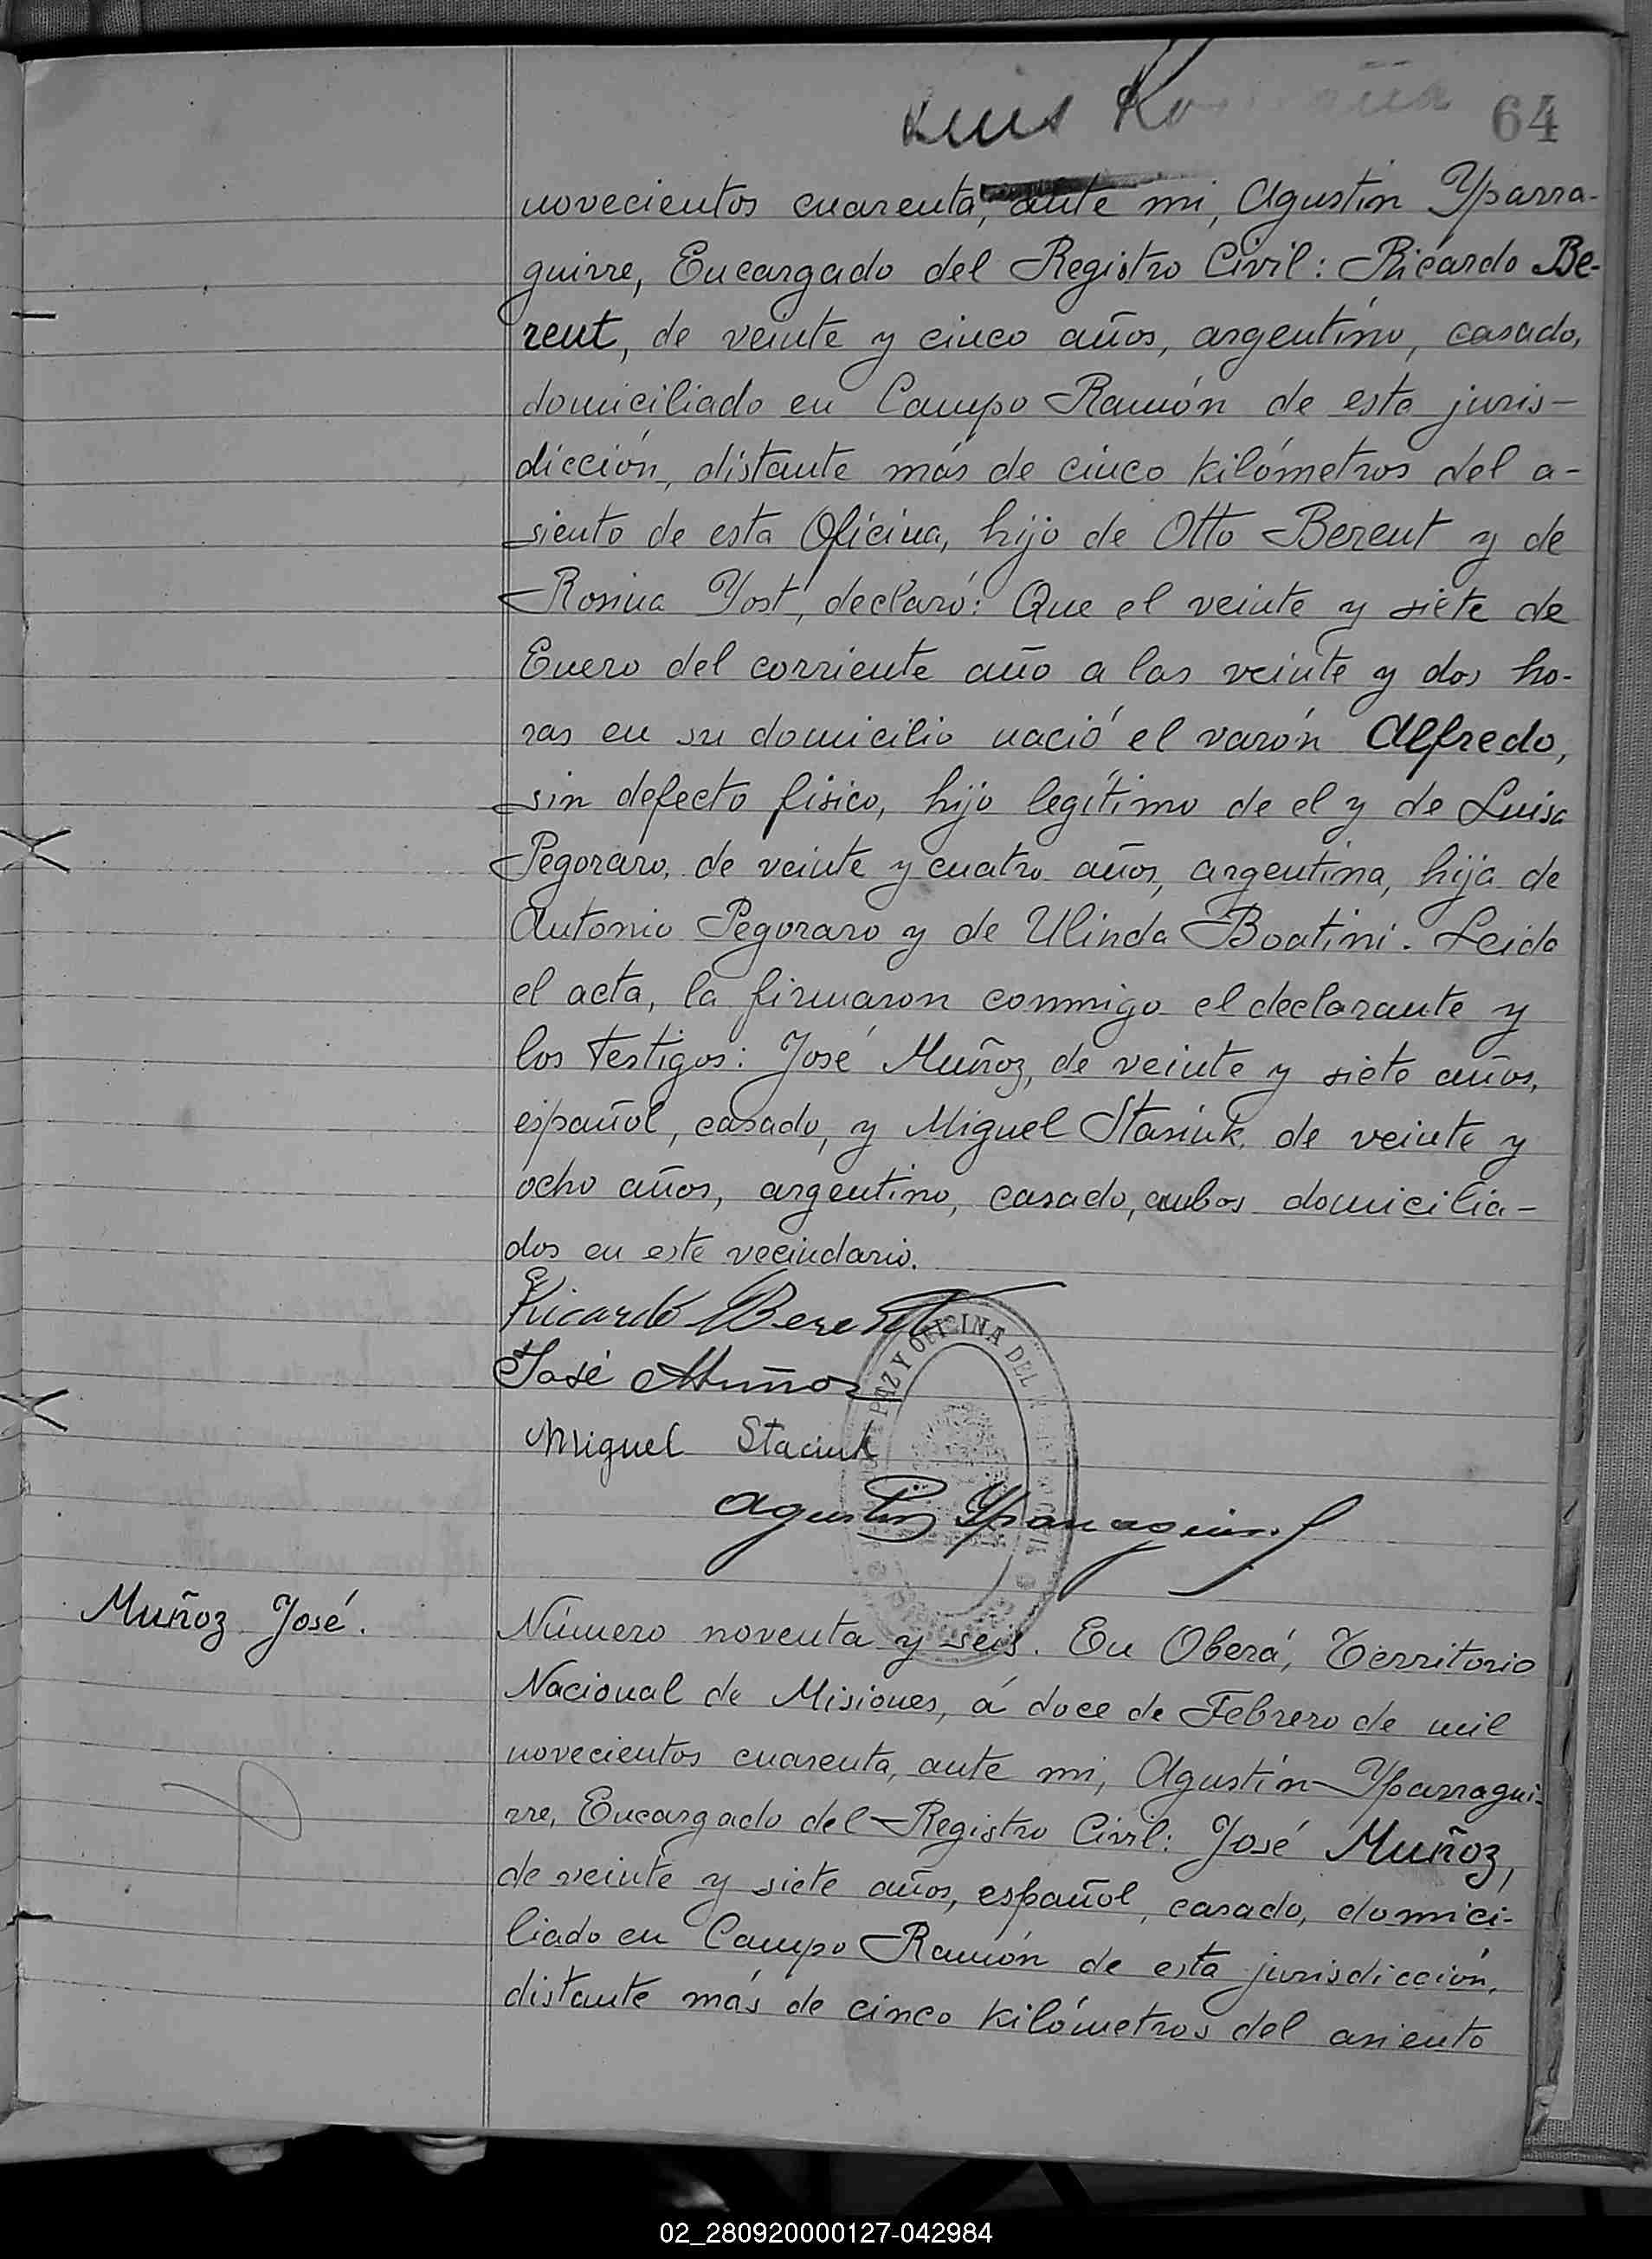 Luis
64
novecientos cuarenta, ante mi, Agustín Yparra-
guirre, Encargado del Registro Civil: Ricardo Be-
rent, de veinte y cinco años, argentino, casado,
domiciliado en Campo Ramón de esta juris-
dicción, distante más de cinco kilómetros del a-
siento de esta Oficina, hijo de Otto Berent y de
Rosina Yost, declaró: Que el veinte y siete de
Enero del corriente año a las veinte y dos ho-
ras en su domicilio nació el varón Alfredo,
sin defecto fisico, hijo legítimo de el y de Luisa
Pegoraro, de veinte y cuatro años, argentina, hija de
Antonio Pegoraro y de Ulinda Boatini. Leida
el acta, la firmaron conmigo el declarante y
los testigos: José Muñoz, de veinte y siete años,
español, casado, y Miguel Stasiuk, de veinte y
ocho años, argentino, casado, ambos domicilia-
dos en este vecindario.
Ricardo Berent
José Muñoz
Miguel Staciuk
PAZ Y OFICINA DEL
Agustín Yparraguirre
Muñoz José.
Número noventa y seis. En Oberá, Territorio
Nacional de Misiones, á doce de Febrero de mil
novecientos cuarenta, ante mi, Agustín Yparragui-
rre, Encargado del Registro Civil: José Muñoz,
de veinte y siete años, español, casado, domici-
liado en Campo Ramón de esta jurisdicción,
distante más de cinco kilómetros del asiento
02_280920000127-042984